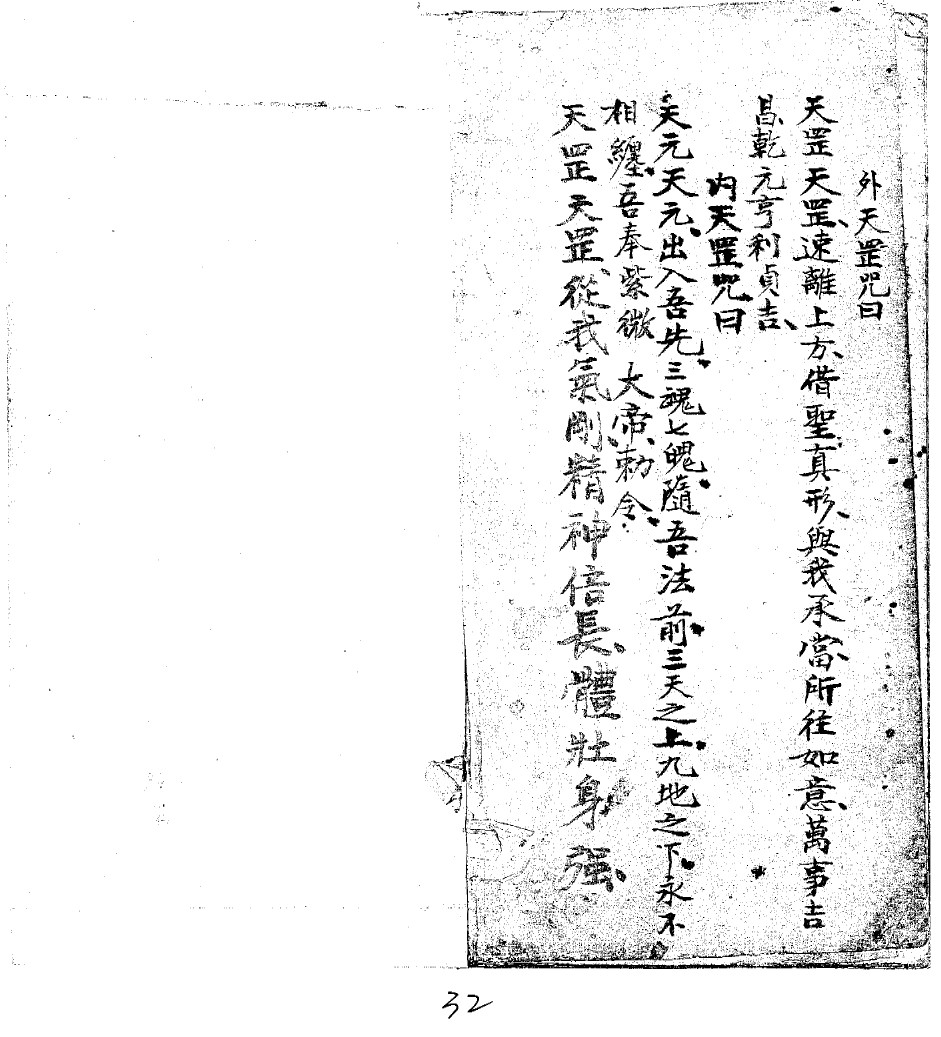 外天罡咒曰
天罡天罡、速離上方、借聖真形、與我承當、所往如意、萬事吉
昌、乾元亨利貞吉、
內天罡咒曰
天元天元、出入吾先、三魂七魄、隨吾法前、三天之上、九地之下、永不
相纏、吾奉紫微 大帝、勅令、
天罡天罡、從我氣剛、精神倍長、體壯身強、
32